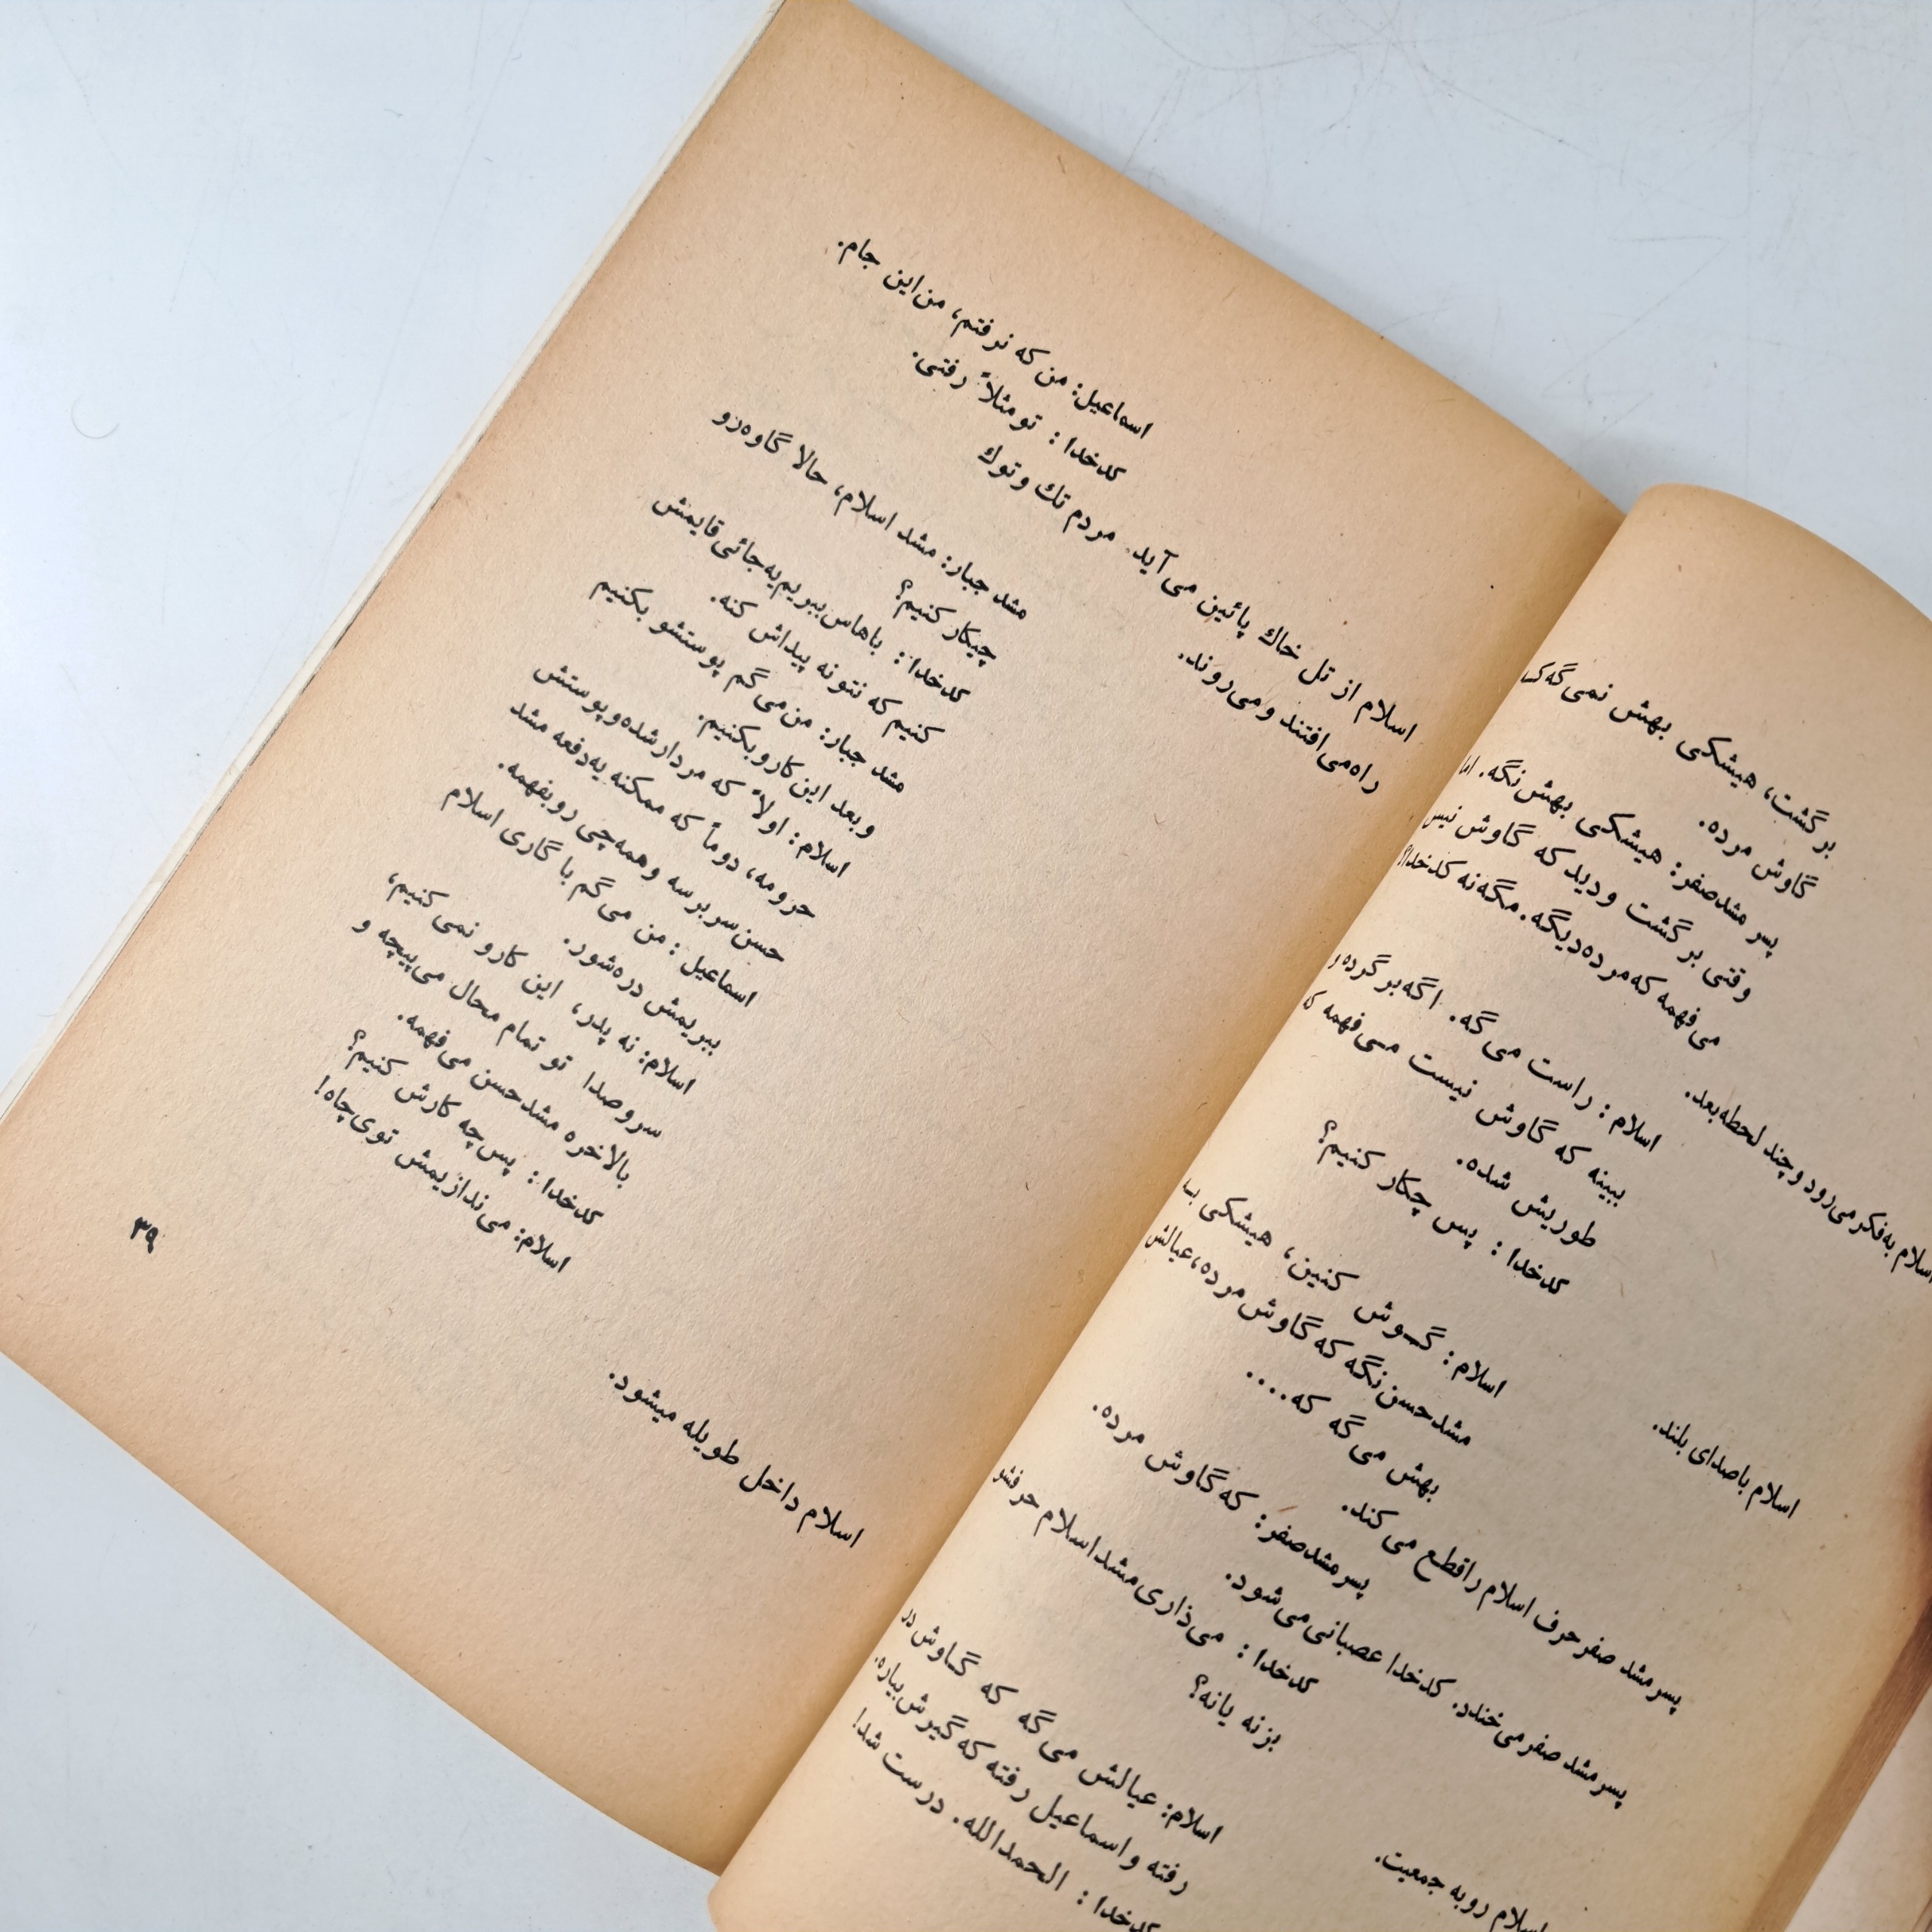 بر گشت، هیشکی بهش نمی‌گه که
گاوش مرده.
پسر مشد صفر: هیشکی بهش نگه. اما
وقتی بر گشت و دید که گاوش نیس
می‌فهمه که مرده دیگه. مگه نه کدخدا؟
اسلام به فکر می‌رود و چند لحظه بعد.
اسلام: راست می‌گه. اگه بر گرده و
ببینه که گاوش نیست می‌فهمه که
طوریش شده.
کدخدا: پس چکار کنیم؟
اسلام با صدای بلند.
اسلام: گوش کنین، هیشکی به
مشد حسن نگه که گاوش مرده، عیالش
بهش می‌گه که....
پسر مشد صفر حرف اسلام را قطع می‌کند.
پسر مشد صفر: که گاوش مرده.
پسر مشد صفر می‌خندد. کدخدا عصبانی می‌شود.
کدخدا: می‌ذاری مشد اسلام حرفشو
بزنه یا نه؟
اسلام رو به جمعیت.
اسلام: عیالش می‌گه که گاوش در
رفته و اسماعیل رفته که گیرش بیاره.
کدخدا: الحمدالله. درست شد!
اسماعیل: من که نرفتم، من این جام.
کدخدا: تو مثلاً رفتی.
اسلام از تل خاك پائین می‌آید. مردم تك و توك
راه می‌افتند و می‌روند.
مشد جبار: مشد اسلام، حالا گاوه رو
چیکار کنیم؟
کدخدا: باهاس ببریم یه جائی قایمش
کنیم که نتونه پیداش کنه.
مشد جبار: من می‌گم پوستشو بکنیم
و بعد این کارو بکنیم.
اسلام: اولاً که مردار شده و پوستش
حرومه، دوماً که ممکنه یه دفعه مشد
حسن سر برسه و همه چی رو بفهمه.
اسماعیل: من می‌گم با گاری اسلام
ببریمش دره شور.
اسلام: نه پدر، این کارو نمی‌کنیم،
سر و صدا تو تمام محال می‌پیچه و
بالاخره مشد حسن می‌فهمه.
کدخدا: پس چه کارش کنیم؟
اسلام: می‌ندازیمش توی چاه!
اسلام داخل طویله میشود.
۳۹